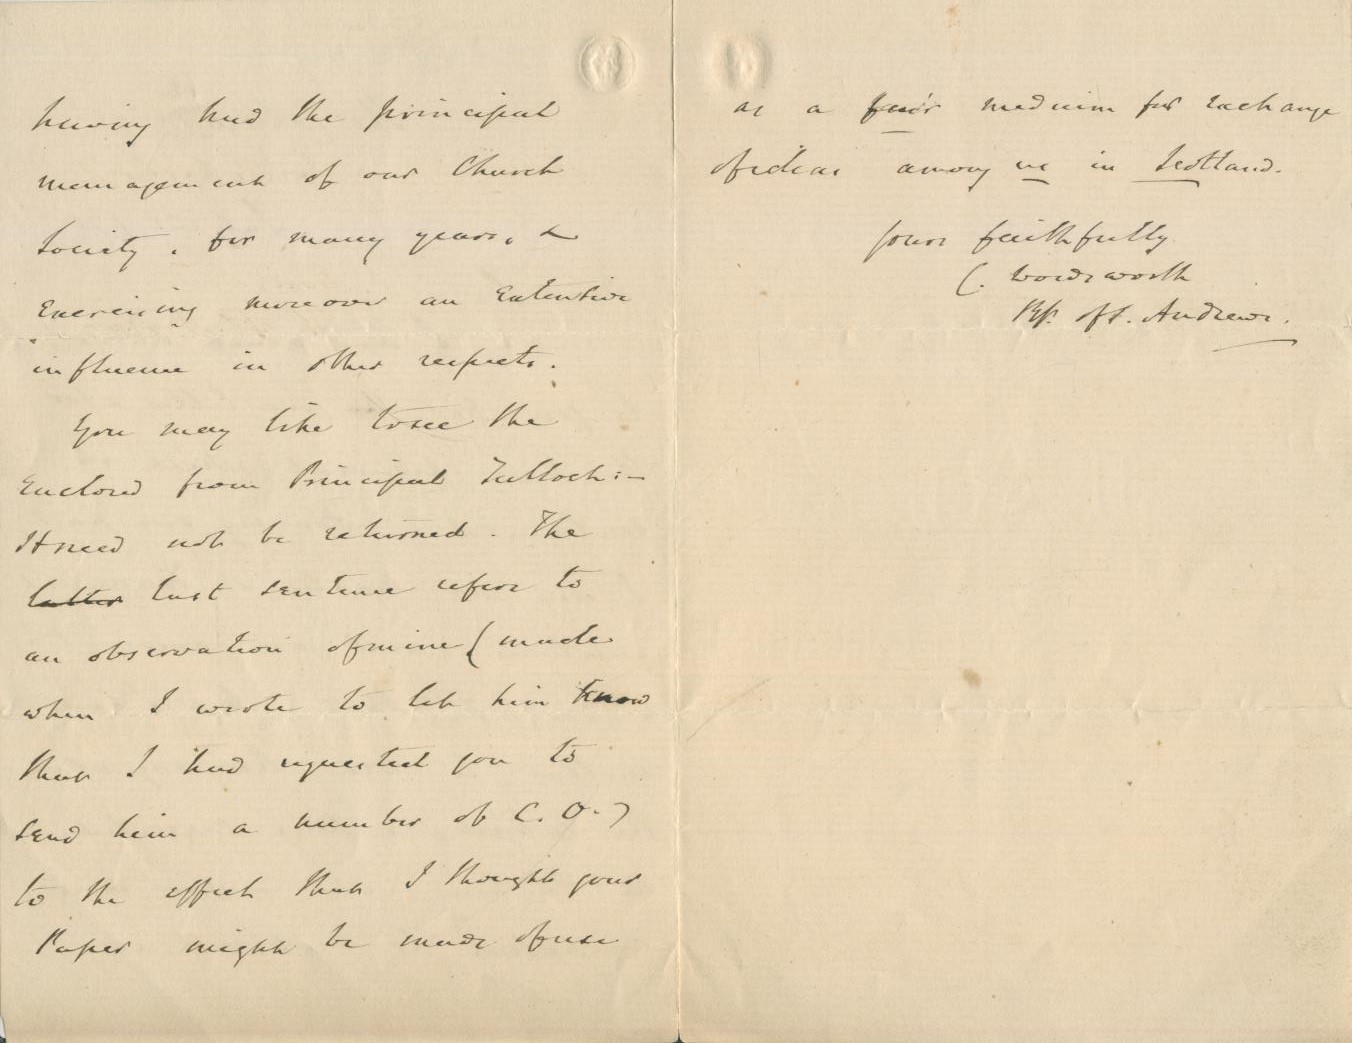 having had the principal
management of our Church
Society, for many years, &
exercising moreover an extensive
influence in other respects.
You may like to see the
enclosed from Principal Tulloch:–
It need not be returned. The
latter last sentence refers to
an observation of mine (made
when I wrote to let him know
that I had requested you to
send him a number of C. O.)
to the effect that I thought your
Paper might be made of use
as a fair medium for exchange
of ideas among us in Scotland.
Yours faithfully
C. Wordsworth
Bp. of St. Andrews.